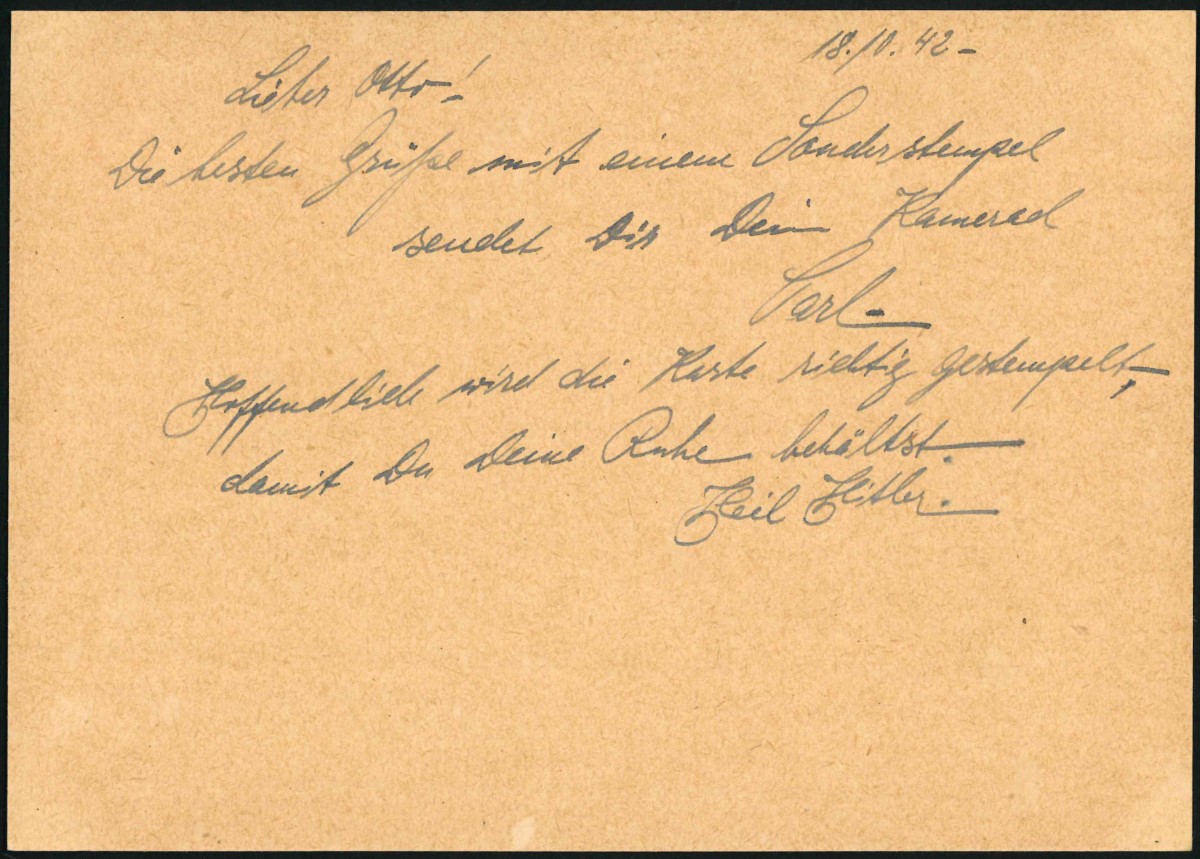 18.10.42-
Lieber Otto!
Die besten Grüße mit einem Sonderstempel
sendet Dir Dein Kamerad
Carl.
Hoffendlich wird die Karte richtig gestempelt,
damit Du Deine Ruhe behältst.
Heil Hitler.